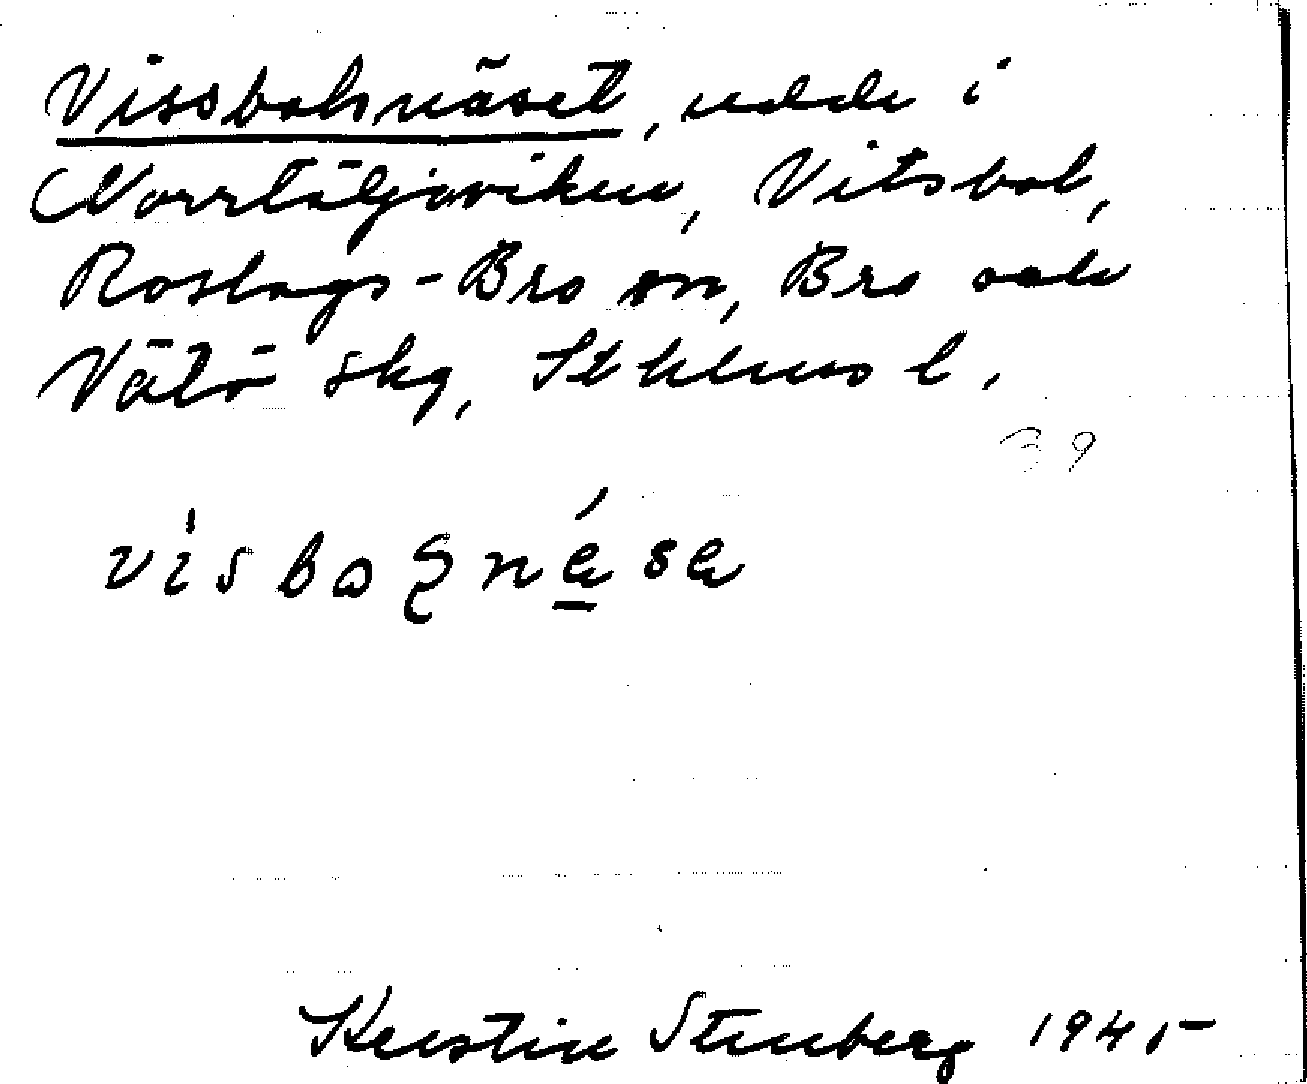 Vissbolsnäset, udde i
Norrtäljeviken, Vitsbol,
Roslags-Bro sn, Bro och
Vätö skg, Sthlms l.
39
Kerstin Stenberg 1945